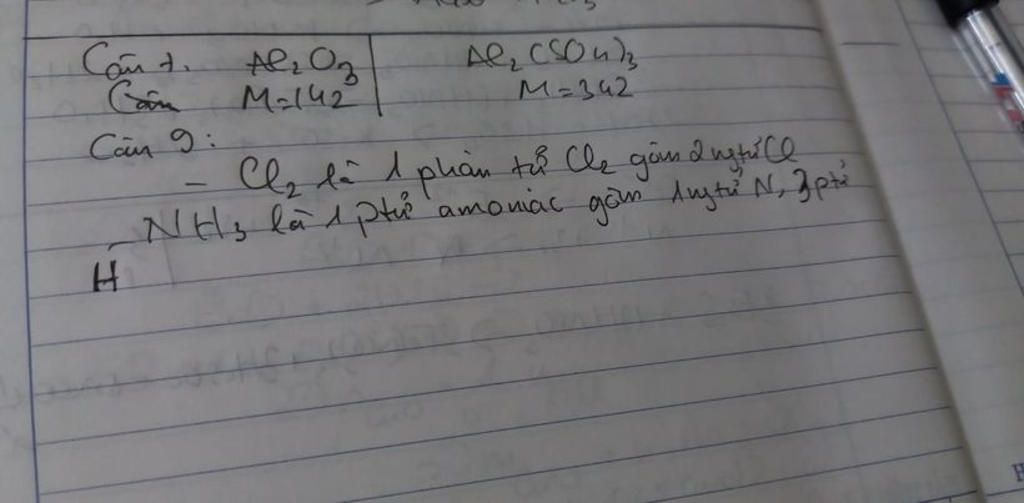 Câu 7. Al₂O₃ Al₂(SO₄)₃
Câu M=142 M=342
Câu 9:
- Cl₂ là 1 phân tử Cl₂ gồm 2 ngtử Cl
- NH₃ là 1 ptử amoniac gồm 1 ngtử N, 3 ptử
H